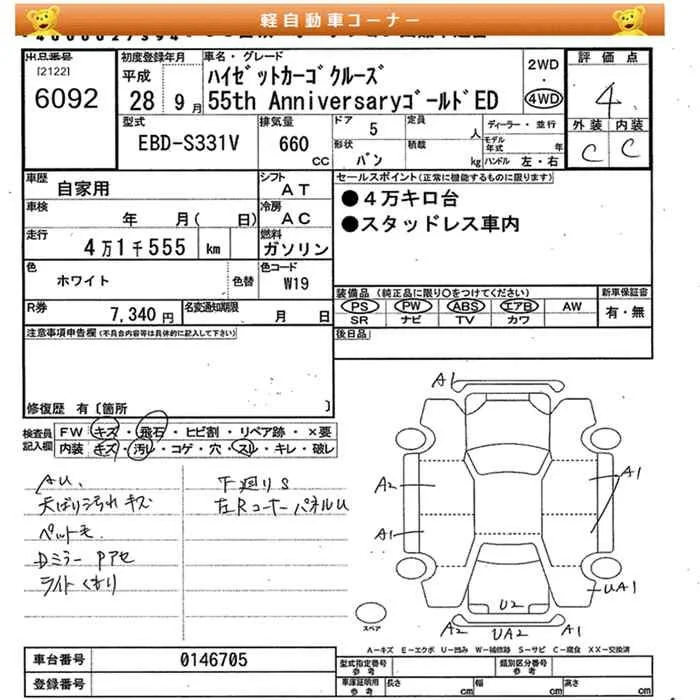 軽自動車コーナー
出品番号 初度登録年月 車名・グレード 2WD 評価点
[2122] 平成 ﾊｲｾﾞｯﾄｶｰｺﾞ ｸﾙｰｽﾞ
6092 28年9月 55th AnniversaryｺﾞｰﾙﾄﾞED 4WD 4
型式 排気量 ドア 5 定員 人 ディーラー・並行 外装 内装
EBD-S331V 660 CC 形状 バン 積載 kg モデル年式 年 ハンドル 左・右 C C
車歴 自家用 シフト AT セールスポイント(正常に機能するものに限ります)
車検 年 月( 日) 冷房 AC ●4万キロ台
走行 4万1千555 km 燃料 ガソリン ●スタッドレス車内
色 ホワイト 色替 色コード W19
装備品 (純正品に限り○をつけてください) 新車保証書
R券 7,340円 名変通知期限 月 日 PS PW ABS エアB AW 有・無
SR ナビ TV カワ
注意事項申告欄(不具合内容等は具体的に記入して下さい) 後日品
修復歴 有〔箇所 〕
検査員記入欄 FW キズ・飛石・ヒビ割・リペア跡・×要
内装 キズ・汚レ・コゲ・穴・スレ・キレ・破レ
AU、 下廻りS
天ばり汚れ キズ 左Rコーナーパネル U
ペット毛
Dミラー Pアセ
ライトくもり
A1
A2 A1
A1
UA1
U2
A2 UA2 A1
スペア
A-キズ E-エクボ U-凹み W-補修跡 S-サビ C-腐食 XX-交換済
車台番号 0146705 型式指定番号 参考 類別区分番号 参考
登録番号 車庫証明用 参考 長さ cm 幅 cm 高さ cm